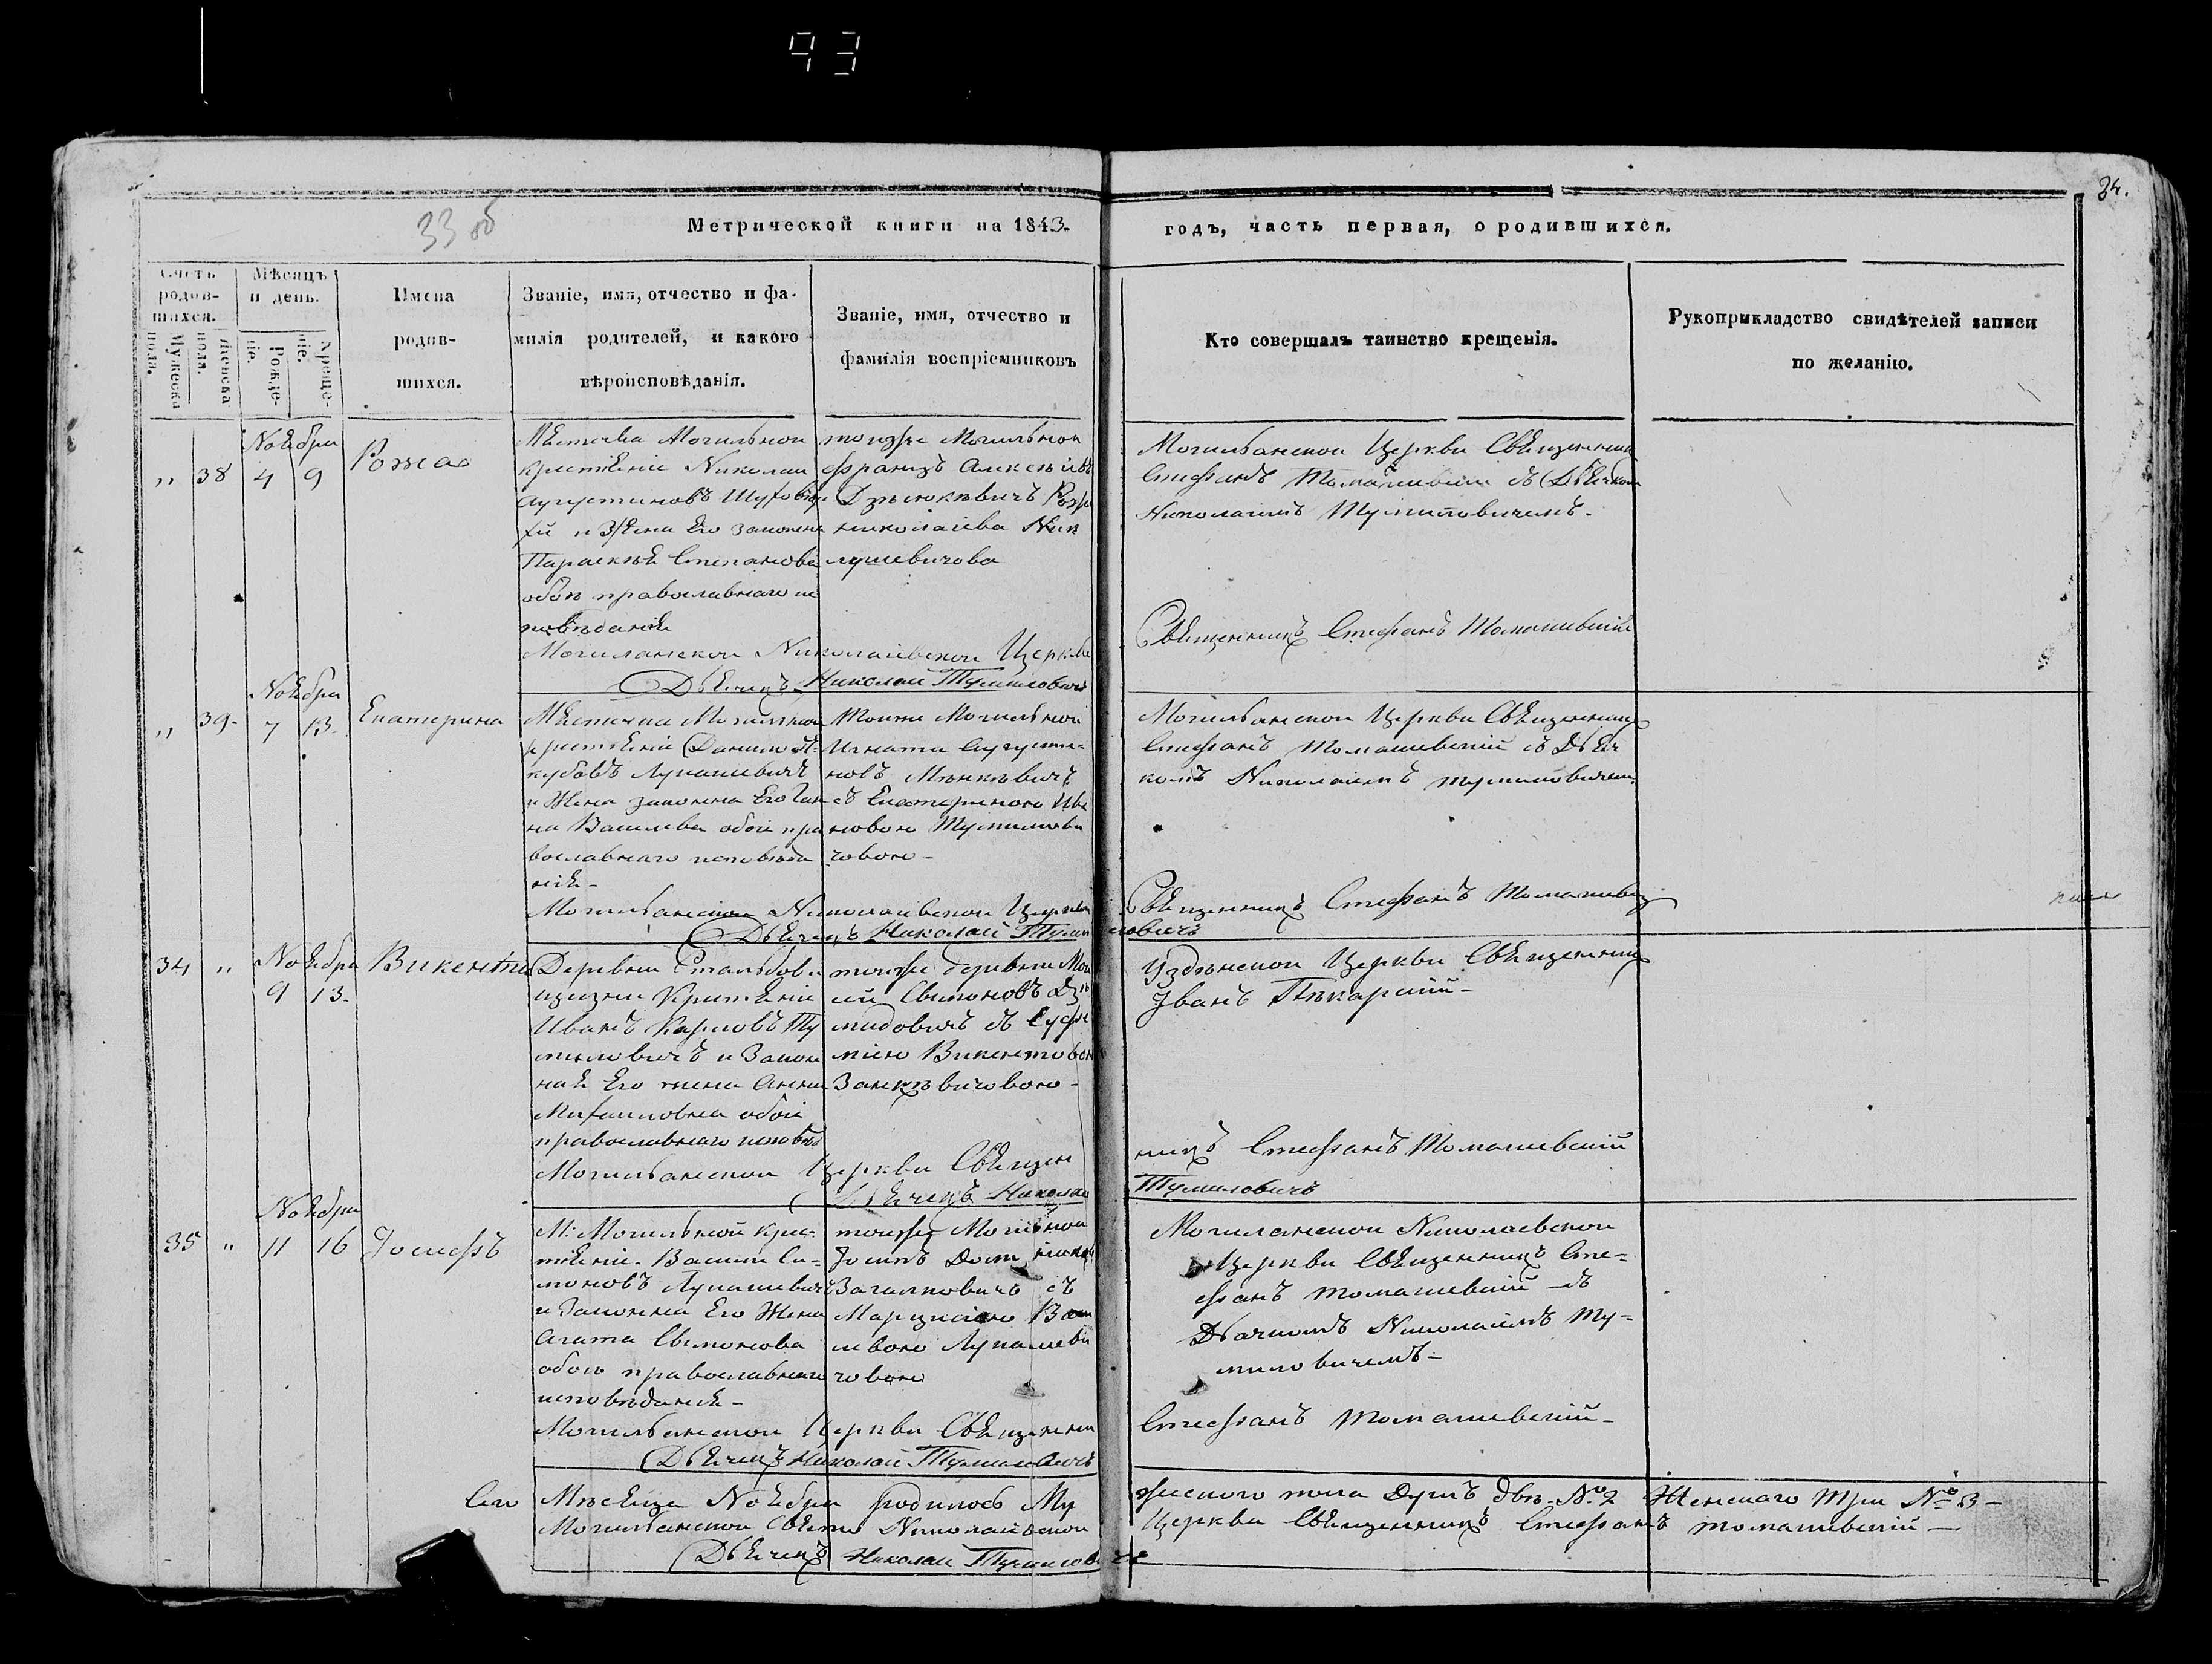 93
34.
33 об
Метрической книги на 1843.
годъ, часть первая, о родившихся.
Счетъ родив-
шихся.
Мужеска
пола.
Женска
пола.
Мѣсяцъ
и день.
Рожде-
ніе.
Креще-
ніе.
Имена
родив-
шихся.
Званіе, имя, отчество и фа-
милія родителей, и какого
вѣроисповѣданія.
Званіе, имя, отчество и
фамилія воспріемниковъ
Кто совершалъ таинство крещенія.
Рукоприкладство свидѣтелей записи
по желанію.
„ 38
Ноября
4 9
Мѣстечка Могильной
Николай
и Жена Его законна
Параскѣя Степанова
обоя православнаго ис
повѣданія
тоиже Могильной
Францъ Алексѣевъ
Николаева
Могильанской Церкви Священникъ
Стефанъ Томашевскій съ Дьячкомъ
Николаемъ Тумиловичемъ.
Священникъ Стефанъ Томашевскій
Могиланской Николаевской Церкви
Дьячекъ Николай Тумиловичъ
„ 39-
Ноября
7 13-
Екатерина
Мѣстечка Могильной
крестьяне Данило Я-
кубовъ Лупашевичъ
и Жена законна Его Ган
на Васильева обои пра
вославнаго исповѣда
нія-
Тоиже Могильной
Игнатій Августи-
новъ Мѣнкѣвичъ
съ Екатериною Ива
новою Тумилови
човою-
Могильанской Церкви Священникъ
Стефанъ Томашевскій съ Дьяч
комъ Николаемъ Тумиловичемъ.
Священникъ Стефанъ Томашевск
Могильанской Николаевской Церкви
Дьячекъ Николай Тумиловичъ
34 „
Ноября
9 13-
Викентій
Деревни
Иванъ Карповъ Ту
миловичъ и Закон
ная Его жена Анна
Михаиловна обои
православнаго исповѣд
тоиже деревни
съ Еуфи
міею Викентовою
Занкѣвичовою-
Узденской Церкви Священникъ
Іванъ Пѣкарскій-
Могильанской Церкви Священ
никъ Стефанъ Томашевскій
Дьячекъ Николай
Тумиловичъ
35 „
Ноября
11 16
Іосифъ
М: Могильной крес-
тьяне. Василій Си-
моновъ Лупашевичъ
и Законна Его Жена
Агата Симонова
обоя православнаго
исповѣданія-
тоиже Могильной
съ
Марциною Васи
левою Лупашеви
човою
Могиланской Николаевской
Церкви Священникъ Сте-
фанъ Томашевскій съ
Дьячкомъ Николаемъ Ту-
миловичемъ-
Могильанской Церкви Священни
Стефанъ Томашевскій-
Дьячекъ Николай Тумиловичъ
Сего Мѣсяца Ноября родилось Му
жескаго пола Душъ двѣ. № 2 Женскаго Три № 3-
Могильанской Свято Николаевской
Церкви Священникъ Стефанъ Томашевскій-
Дьячекъ Николай Тумиловичъ